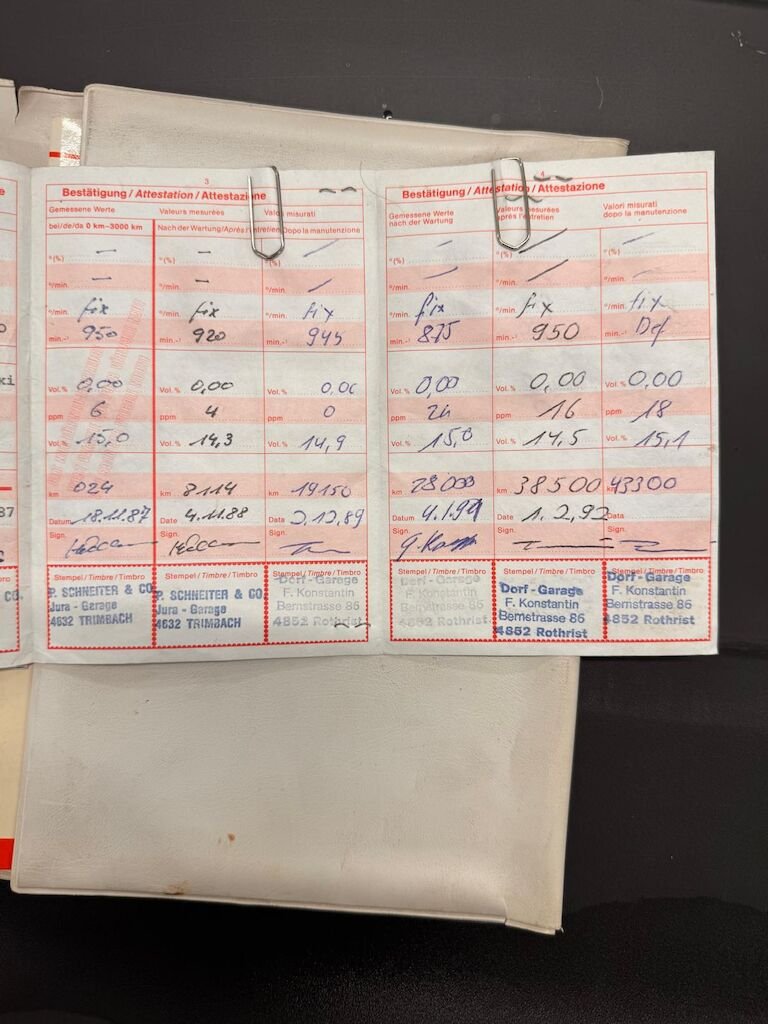 3
Bestätigung / Attestation / Attestazione
Gemessene Werte Valeurs mesurées Valori misurati
bei/de/da 0 km–3000 km Nach der Wartung/Après l'entretien/Dopo la manutenzione
°(%) — °(%) / (%)
— °/min. — °/min. /
fix fix fix
950 min.-¹ 920 min.-¹ 945
0,00 Vol.% 0,00 Vol.% 0,00
6 ppm 4 ppm 0
15,0 Vol.% 14,3 Vol.% 14,9
024 km 8114 km 19150
Datum 18.11.87 Date 4.11.88 Data 2.12.89
Sign. Sign. Sign.
Stempel/Timbre/Timbro Stempel/Timbre/Timbro Stempel/Timbre/Timbro
P. SCHNEITER & CO. P. SCHNEITER & CO. Dorf - Garage
Jura - Garage Jura - Garage F. Konstantin
4632 TRIMBACH 4632 TRIMBACH Bernstrasse 86
4852 Rothrist
4
Bestätigung / Attestation / Attestazione
Gemessene Werte Valeurs mesurées Valori misurati
nach der Wartung après l'entretien dopo la manutenzione
°(%) — °(%) / °(%) —
°/min. — °/min. / °/min. /
fix fix fix
min.-¹ 875 min.-¹ 950 min.-¹
Vol.% 0,00 Vol.% 0,00 Vol.% 0,00
ppm ppm 16 ppm 18
Vol.% 15,0 Vol.% 14,5 Vol.% 15,1
km 28000 km 38500 43300
Datum Date 1.2.92 Data
Sign. Sign. Sign.
Stempel/Timbre/Timbro Stempel/Timbre/Timbro Stempel/Timbre/Timbro
Dorf - Garage Dorf - Garage Dorf - Garage
F. Konstantin F. Konstantin F. Konstantin
Bernstrasse 86 Bernstrasse 86 Bernstrasse 86
4852 Rothrist 4852 Rothrist 4852 Rothrist